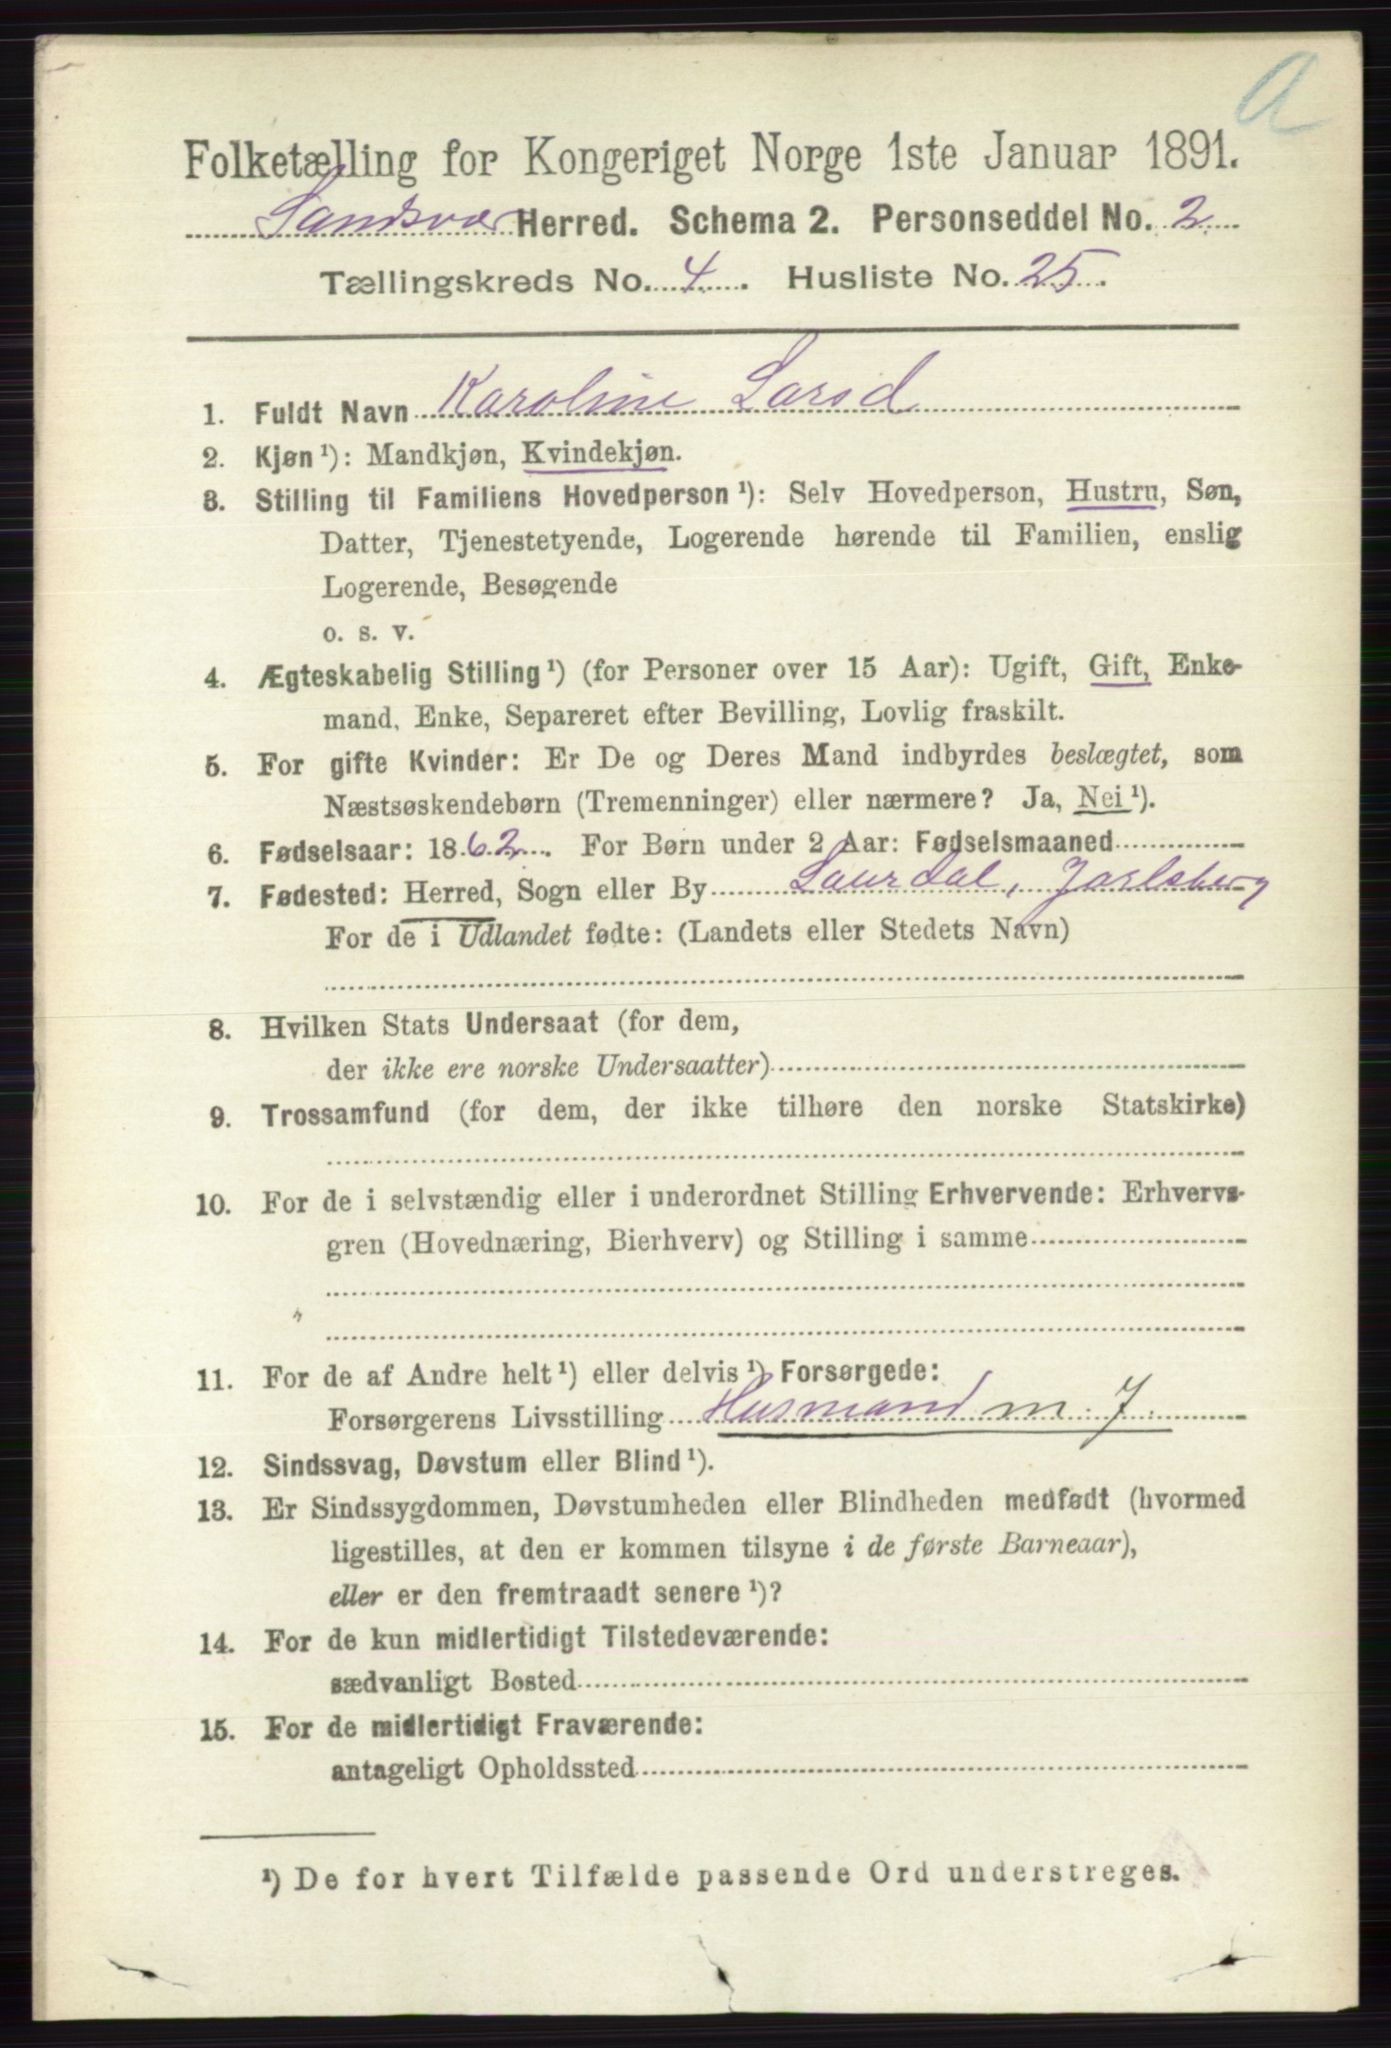 a
Folketælling for Kongeriget Norge 1ste Januar 1891.
Sandsvær Herred. Schema 2. Personseddel No. 2
Tællingskreds No. 4. Husliste No. 25.
1. Fuldt Navn Karoline Larsd
2. Kjøn ¹): Mandkjøn, Kvindekjøn.
3. Stilling til Familiens Hovedperson ¹): Selv Hovedperson, Hustru, Søn,
Datter, Tjenestetyende, Logerende hørende til Familien, enslig
Logerende, Besøgende
o. s. v.
4. Ægteskabelig Stilling ¹) (for Personer over 15 Aar): Ugift, Gift, Enke-
mand, Enke, Separeret efter Bevilling, Lovlig fraskilt.
5. For gifte Kvinder: Er De og Deres Mand indbyrdes beslægtet, som
Næstsøskendebørn (Tremenninger) eller nærmere? Ja, Nei ¹).
6. Fødselsaar: 1862. For Børn under 2 Aar: Fødselsmaaned
7. Fødested: Herred, Sogn eller By Laurdal, Jarlsberg
For de i Udlandet fødte: (Landets eller Stedets Navn)
8. Hvilken Stats Undersaat (for dem,
der ikke ere norske Undersaatter)
9. Trossamfund (for dem, der ikke tilhøre den norske Statskirke)
10. For de i selvstændig eller i underordnet Stilling Erhvervende: Erhvervs-
gren (Hovednæring, Bierhverv) og Stilling i samme
11. For de af Andre helt ¹) eller delvis ¹) Forsørgede:
Forsørgerens Livsstilling Husmand m. J.
12. Sindssvag, Døvstum eller Blind ¹).
13. Er Sindssygdommen, Døvstumheden eller Blindheden medfødt (hvormed
ligestilles, at den er kommen tilsyne i de første Barneaar),
eller er den fremtraadt senere ¹)?
14. For de kun midlertidigt Tilstedeværende:
sædvanligt Bosted
15. For de midlertidigt Fraværende:
antageligt Opholdssted
¹) De for hvert Tilfælde passende Ord understreges.